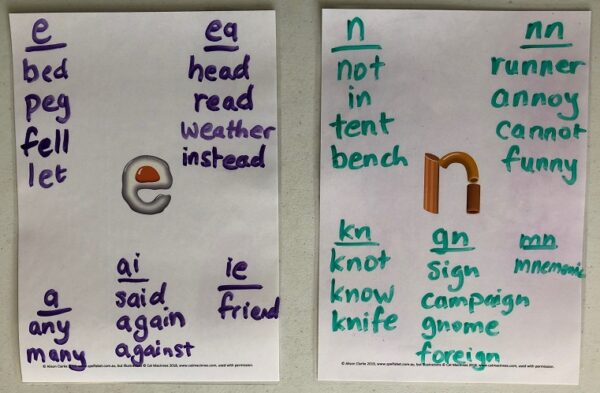 e
bed
peg
fell
let
ea
head
read
weather
instead
e
a
any
many
ai
said
again
against
ie
friend
© Alison Clarke 2019, www.spelfabet.com.au, but illustrations © Cat MacInnes 2018, www.catmacinnes.com, used with permission.
n
not
in
tent
bench
nn
runner
annoy
cannot
funny
n
kn
knot
know
knife
gn
sign
campaign
gnome
foreign
mn
mnemonic
© Alison Clarke 2019, www.spelfabet.com.au, but illustrations © Cat MacInnes 2018, www.catmacinnes.com, used with permission.